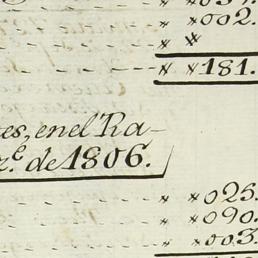 002.
181.
tes, en el Ra-
z.e de 1806.
025.
090.
003.